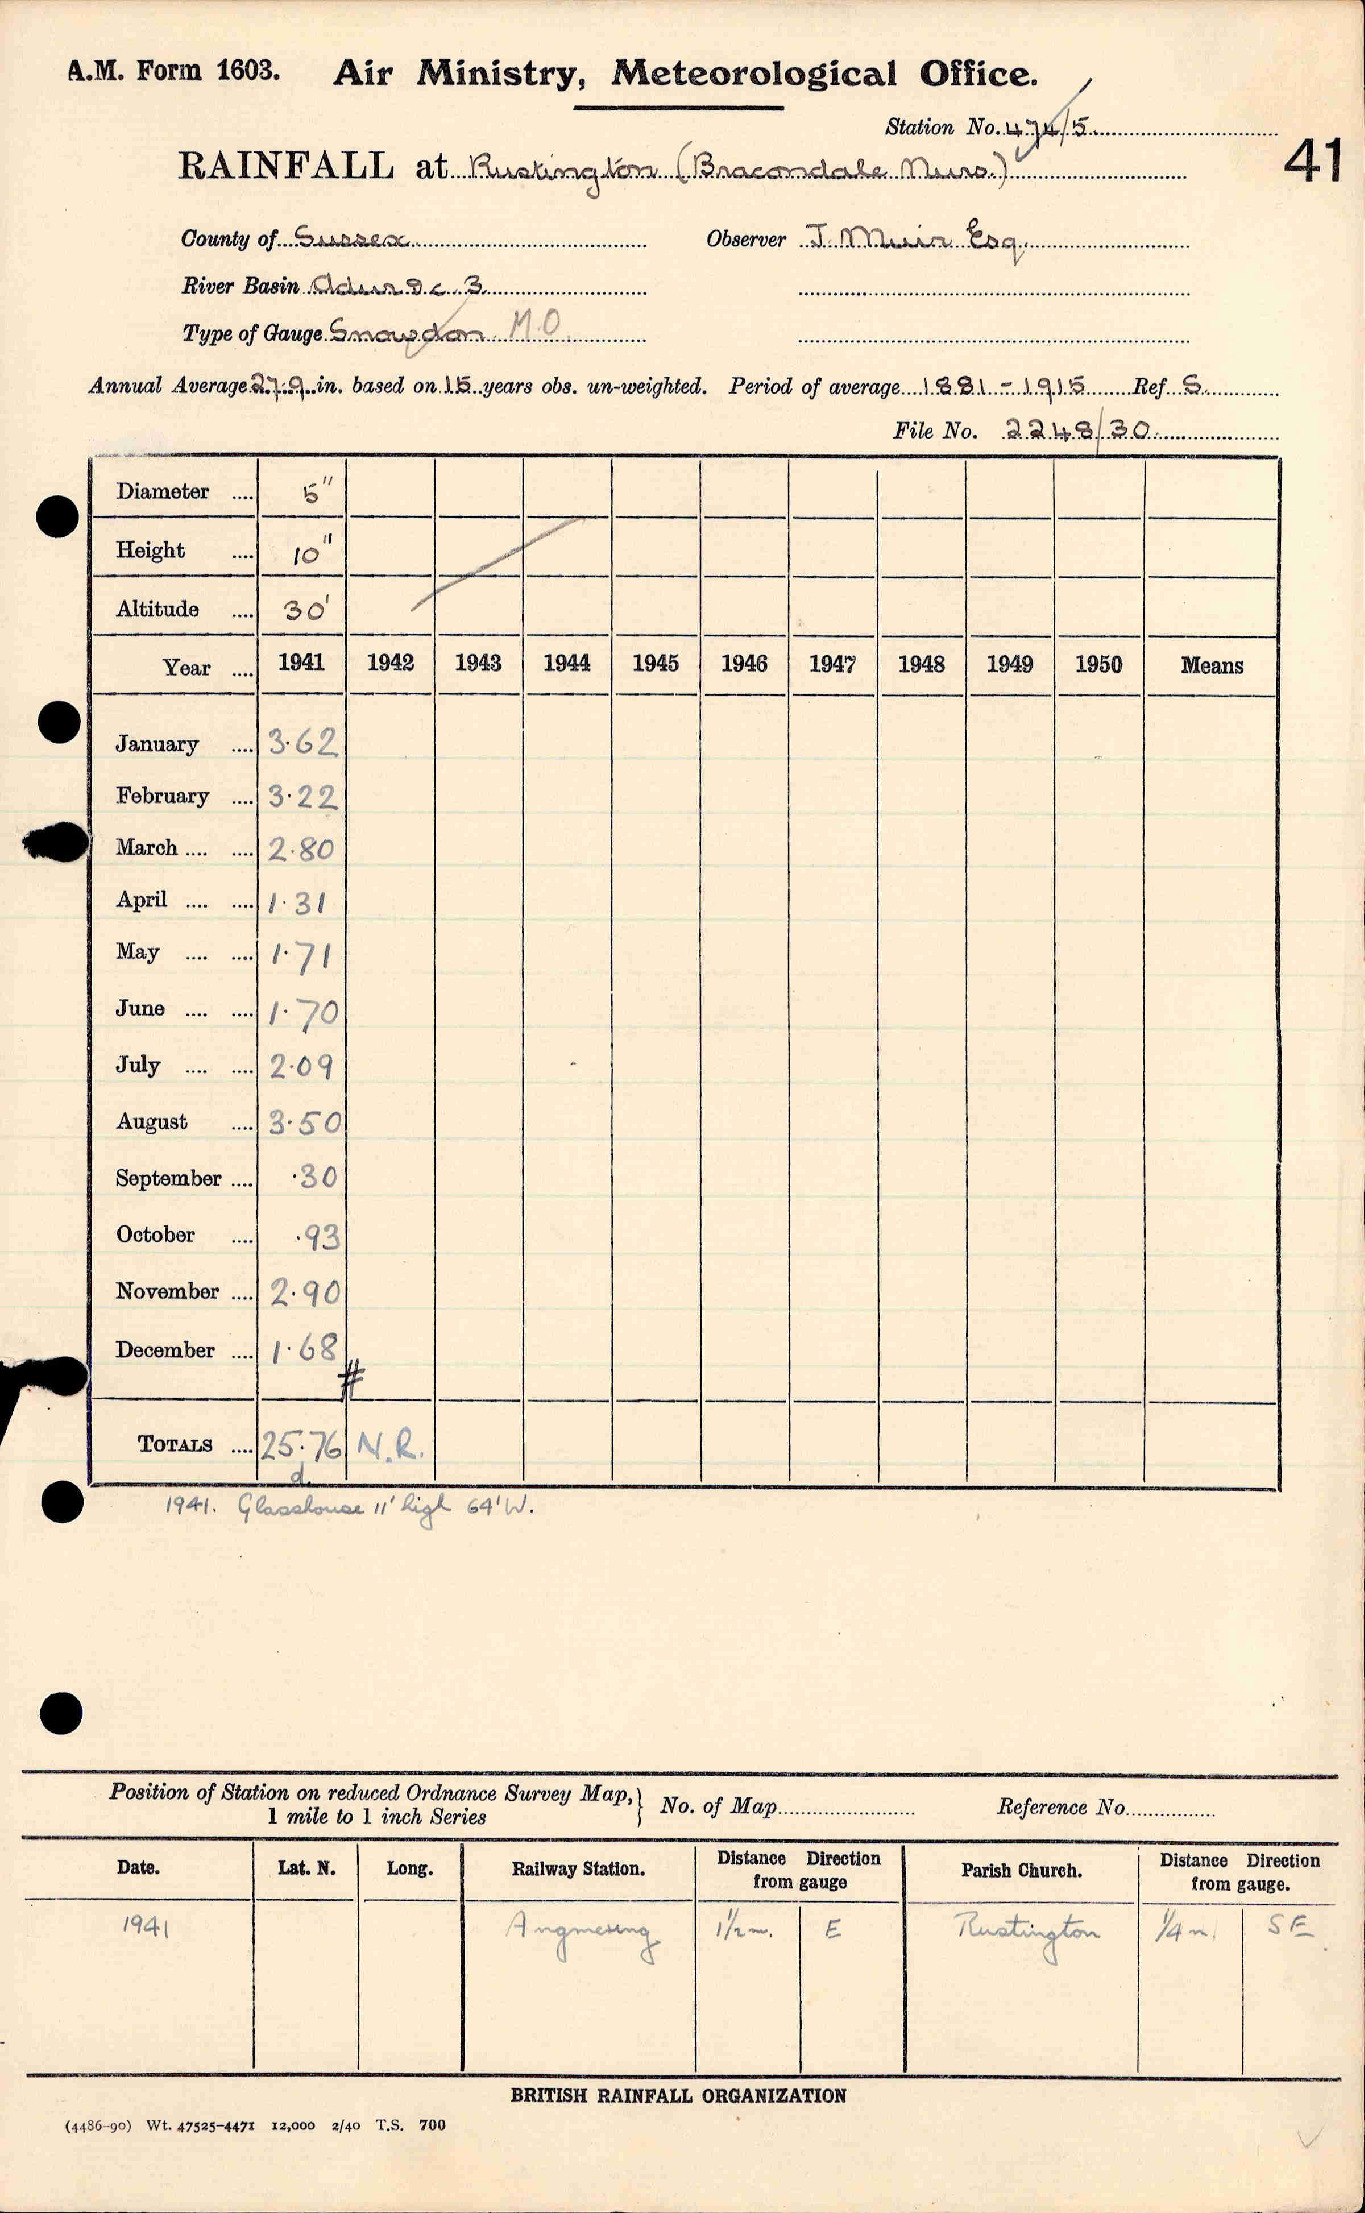 A.M. Form 1603. Air Ministry, Meteorological Office.
Station No. 474/5
41
RAINFALL at Rustington (Bracondale Nurs.)
County of Sussex Observer J. Muir Esq.
River Basin Adur &c 3
Type of Gauge Snowdon M.O.
Annual Average 27.9 in. based on 15 years obs. un-weighted. Period of average 1881-1915 Ref S.
File No. 2248/30
Diameter .... 5"
Height .... 10"
Altitude .... 30'
Year .... 1941 1942 1943 1944 1945 1946 1947 1948 1949 1950 Means
January .... 3.62
February .... 3.22
March .... .... 2.80
April .... .... 1.31
May .... .... 1.71
June .... .... 1.70
July .... .... 2.09
August .... 3.50
September .... .30
October .... .93
November .... 2.90
December .... 1.68
#
TOTALS .... 25.76 N.R.
d
1941. Glasshouse 11' high 64' W.
Position of Station on reduced Ordnance Survey Map,} No. of Map Reference No.
1 mile to 1 inch Series
Date. Lat. N. Long. Railway Station. Distance Direction from gauge Parish Church. Distance Direction from gauge.
1941 Angmering 1½ m. E Rustington ¼ m. SE
BRITISH RAINFALL ORGANIZATION
(4486-90) Wt. 47525-4471 12,000 2/40 T.S. 700